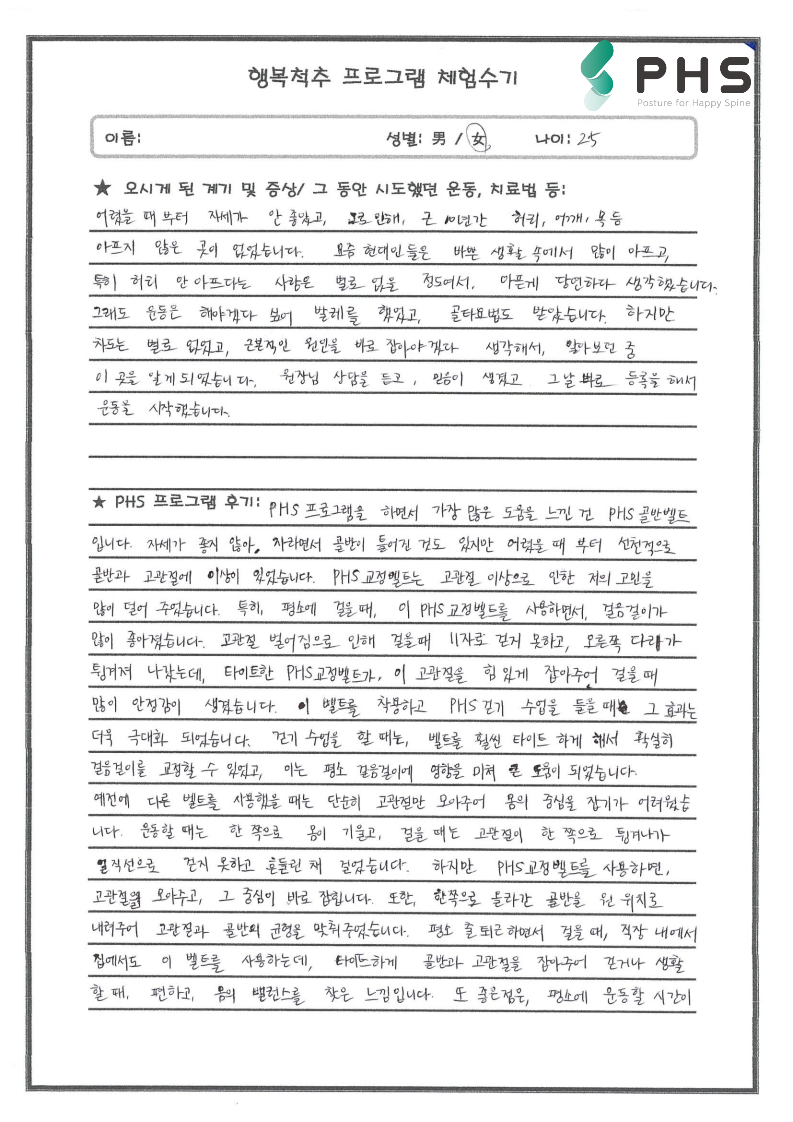 PHS
Posture for Happy Spine
행복척추 프로그램 체험수기
이름: 성별: 男 / 女 나이: 25
★ 오시게 된 계기 및 증상/ 그 동안 시도했던 운동, 치료법 등:
어렸을 때 부터 자세가 안 좋았고, 그로 인해, 근 10년간 허리, 어깨, 목 등
아프지 않은 곳이 없었습니다. 요즘 현대인들은 바쁜 생활 속에서 많이 아프고,
특히 허리 안 아프다는 사람은 별로 없을 정도여서, 아픈게 당연하다 생각했습니다.
그래도 운동은 해야겠다 싶어 발레를 했었고, 골타요법도 받았습니다. 하지만
차도는 별로 없었고, 근본적인 원인을 바로 잡아야 겠다 생각해서, 알아보던 중
이 곳을 알게 되었습니다. 원장님 상담을 듣고, 믿음이 생겼고 그날 바로 등록을 해서
운동을 시작했습니다.
★ PHS 프로그램 후기: PHS 프로그램을 하면서 가장 많은 도움을 느낀 건 PHS 골반벨트
입니다. 자세가 좋지 않아, 자라면서 골반이 틀어진 것도 있지만 어렸을 때 부터 선천적으로
골반과 고관절에 이상이 있었습니다. PHS 교정벨트는 고관절 이상으로 인한 저의 고민을
많이 덜어 주었습니다. 특히, 평소에 걸을 때, 이 PHS 교정벨트를 사용하면서, 걸음걸이가
많이 좋아졌습니다. 고관절 벌어짐으로 인해 걸을때 11자로 걷지 못하고, 오른쪽 다리가
튕겨져 나갔는데, 타이트한 PHS 교정벨트가, 이 고관절을 힘 있게 잡아주어 걸을 때
많이 안정감이 생겼습니다. 이 벨트를 착용하고 PHS 걷기 수업을 들을 때 그 효과는
더욱 극대화 되었습니다. 걷기 수업을 할 때는, 벨트를 훨씬 타이트 하게 해서 확실히
걸음걸이를 교정할 수 있었고, 이는 평소 걸음걸이에 영향을 미쳐 큰 도움이 되었습니다.
예전에 다른 벨트를 사용했을 때는 단순히 고관절만 모아주어 몸의 중심을 잡기가 어려웠습
니다. 운동할 때는 한 쪽으로 몸이 기울고, 걸을 때는 고관절이 한 쪽으로 튕겨나가
일직선으로 걷지 못하고 흔들린 채 걸었습니다. 하지만 PHS 교정벨트를 사용하면,
고관절을 모아주고, 그 중심이 바로 잡힙니다. 또한, 한쪽으로 올라간 골반을 원 위치로
내려주어 고관절과 골반의 균형을 맞춰주었습니다. 평소 출퇴근하면서 걸을 때, 직장 내에서
집에서도 이 벨트를 사용하는데, 타이트하게 골반과 고관절을 잡아주어 걷거나 생활
할 때, 편하고, 몸의 밸런스를 찾은 느낌입니다. 또 좋은점은, 평소에 운동할 시간이